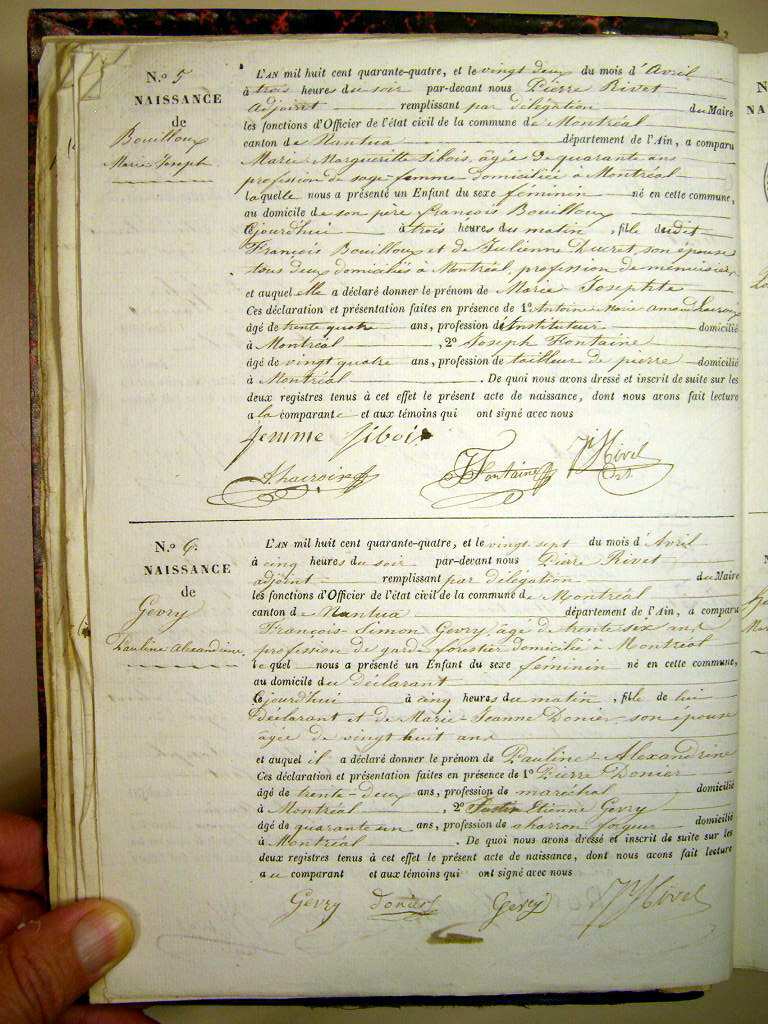 N.o 5
NAISSANCE
de
Bouilloux
Marie Joseph
L'AN mil huit cent quarante-quatre, et le vingt deux du mois d'Avril
à trois heures du soir par-devant nous Pierre Rivet
Adjoint remplissant par délégation du Maire
les fonctions d'Officier de l'état civil de la commune de Montréal
canton de Nantua département de l'Ain, a comparu
Marie Marguerite Sibois, âgée de quarante ans
profession de sage-femme domiciliée à Montréal
laquelle nous a présenté un Enfant du sexe féminin né en cette commune,
au domicile de son père François Bouilloux
Cejourd'hui à trois heures du matin, fille dudit
François Bouilloux et de Julienne Ducret, son épouse
tous deux domiciliés à Montréal, profession de menuisier
et auquel elle a déclaré donner le prénom de Marie Josephte
Ces déclaration et présentation faites en présence de 1o Antoine Marie
âgé de trente quatre ans, profession d'Instituteur domicilié
à Montréal, 2o Joseph Fontaine
âgé de vingt quatre ans, profession de tailleur de pierre domicilié
à Montréal. De quoi nous avons dressé et inscrit de suite sur les
deux registres tenus à cet effet le présent acte de naissance, dont nous avons fait lecture
a la comparante et aux témoins qui ont signé avec nous
femme Sibois
Fontaine
N.o 6.
NAISSANCE
de
Gevry
Pauline Alexandrine
L'AN mil huit cent quarante-quatre, et le vingt sept du mois d'Avril
à cinq heures du soir par-devant nous Pierre Rivet
adjoint remplissant par délégation du Maire
les fonctions d'Officier de l'état civil de la commune de Montréal
canton de Nantua département de l'Ain, a comparu
François Simon Gevry, âgé de trente six ans
profession de garde forestier domicilié à Montréal
lequel nous a présenté un Enfant du sexe feminin né en cette commune,
au domicile du déclarant
Cejourd'hui à cinq heures du matin, fille de lui
Déclarant et de Marie Jeanne Donier son épouse
âgée de vingt huit ans
et auquel il a déclaré donner le prénom de Pauline Alexandrine
Ces déclaration et présentation faites en présence de 1o Pierre Donier
âgé de trente-deux ans, profession de maréchal domicilié
à Montréal, 2o Etienne Gevry
âgé de quarante un ans, profession de charron domicilié
à Montréal. De quoi nous avons dressé et inscrit de suite sur les
deux registres tenus à cet effet le présent acte de naissance, dont nous avons fait lecture
a u comparant et aux témoins qui ont signé avec nous
Gevry Donier Gevry